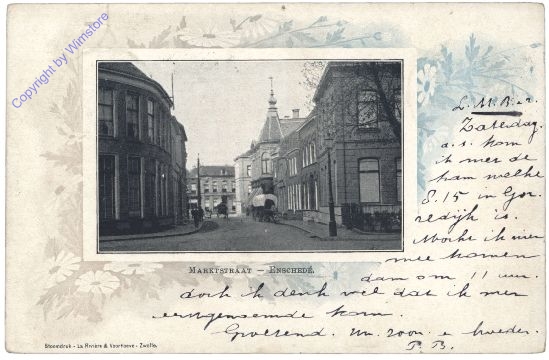 Copyright by Wimstore
MARKTSTRAAT — ENSCHEDÉ.
L. M. B. e. z.
Zaterdag
a.s. kom
ik met de
tram welke
8.15 in Gor
redijk is.
Mocht ik hier
mee komen
dan om 11 uur.
doch ik denk wel dat ik met
eerstgenoemde kom.
Groetend. Uw zoon. e broeder.
P. B.
Stoomdruk - La Rivière & Voorhoeve - Zwolle.